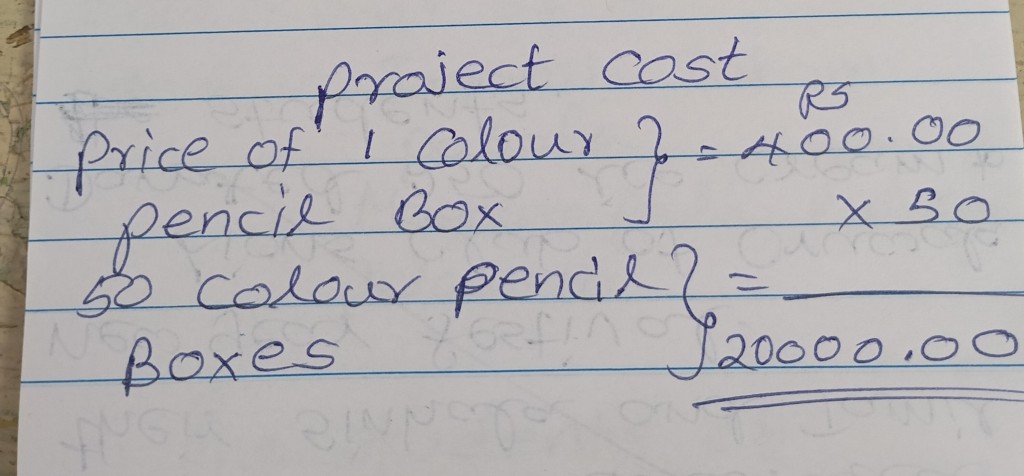 project cost
RS
Price of 1 colour } = 400.00
pencil Box × 50
50 colour pencil } =
Boxes 20000.00